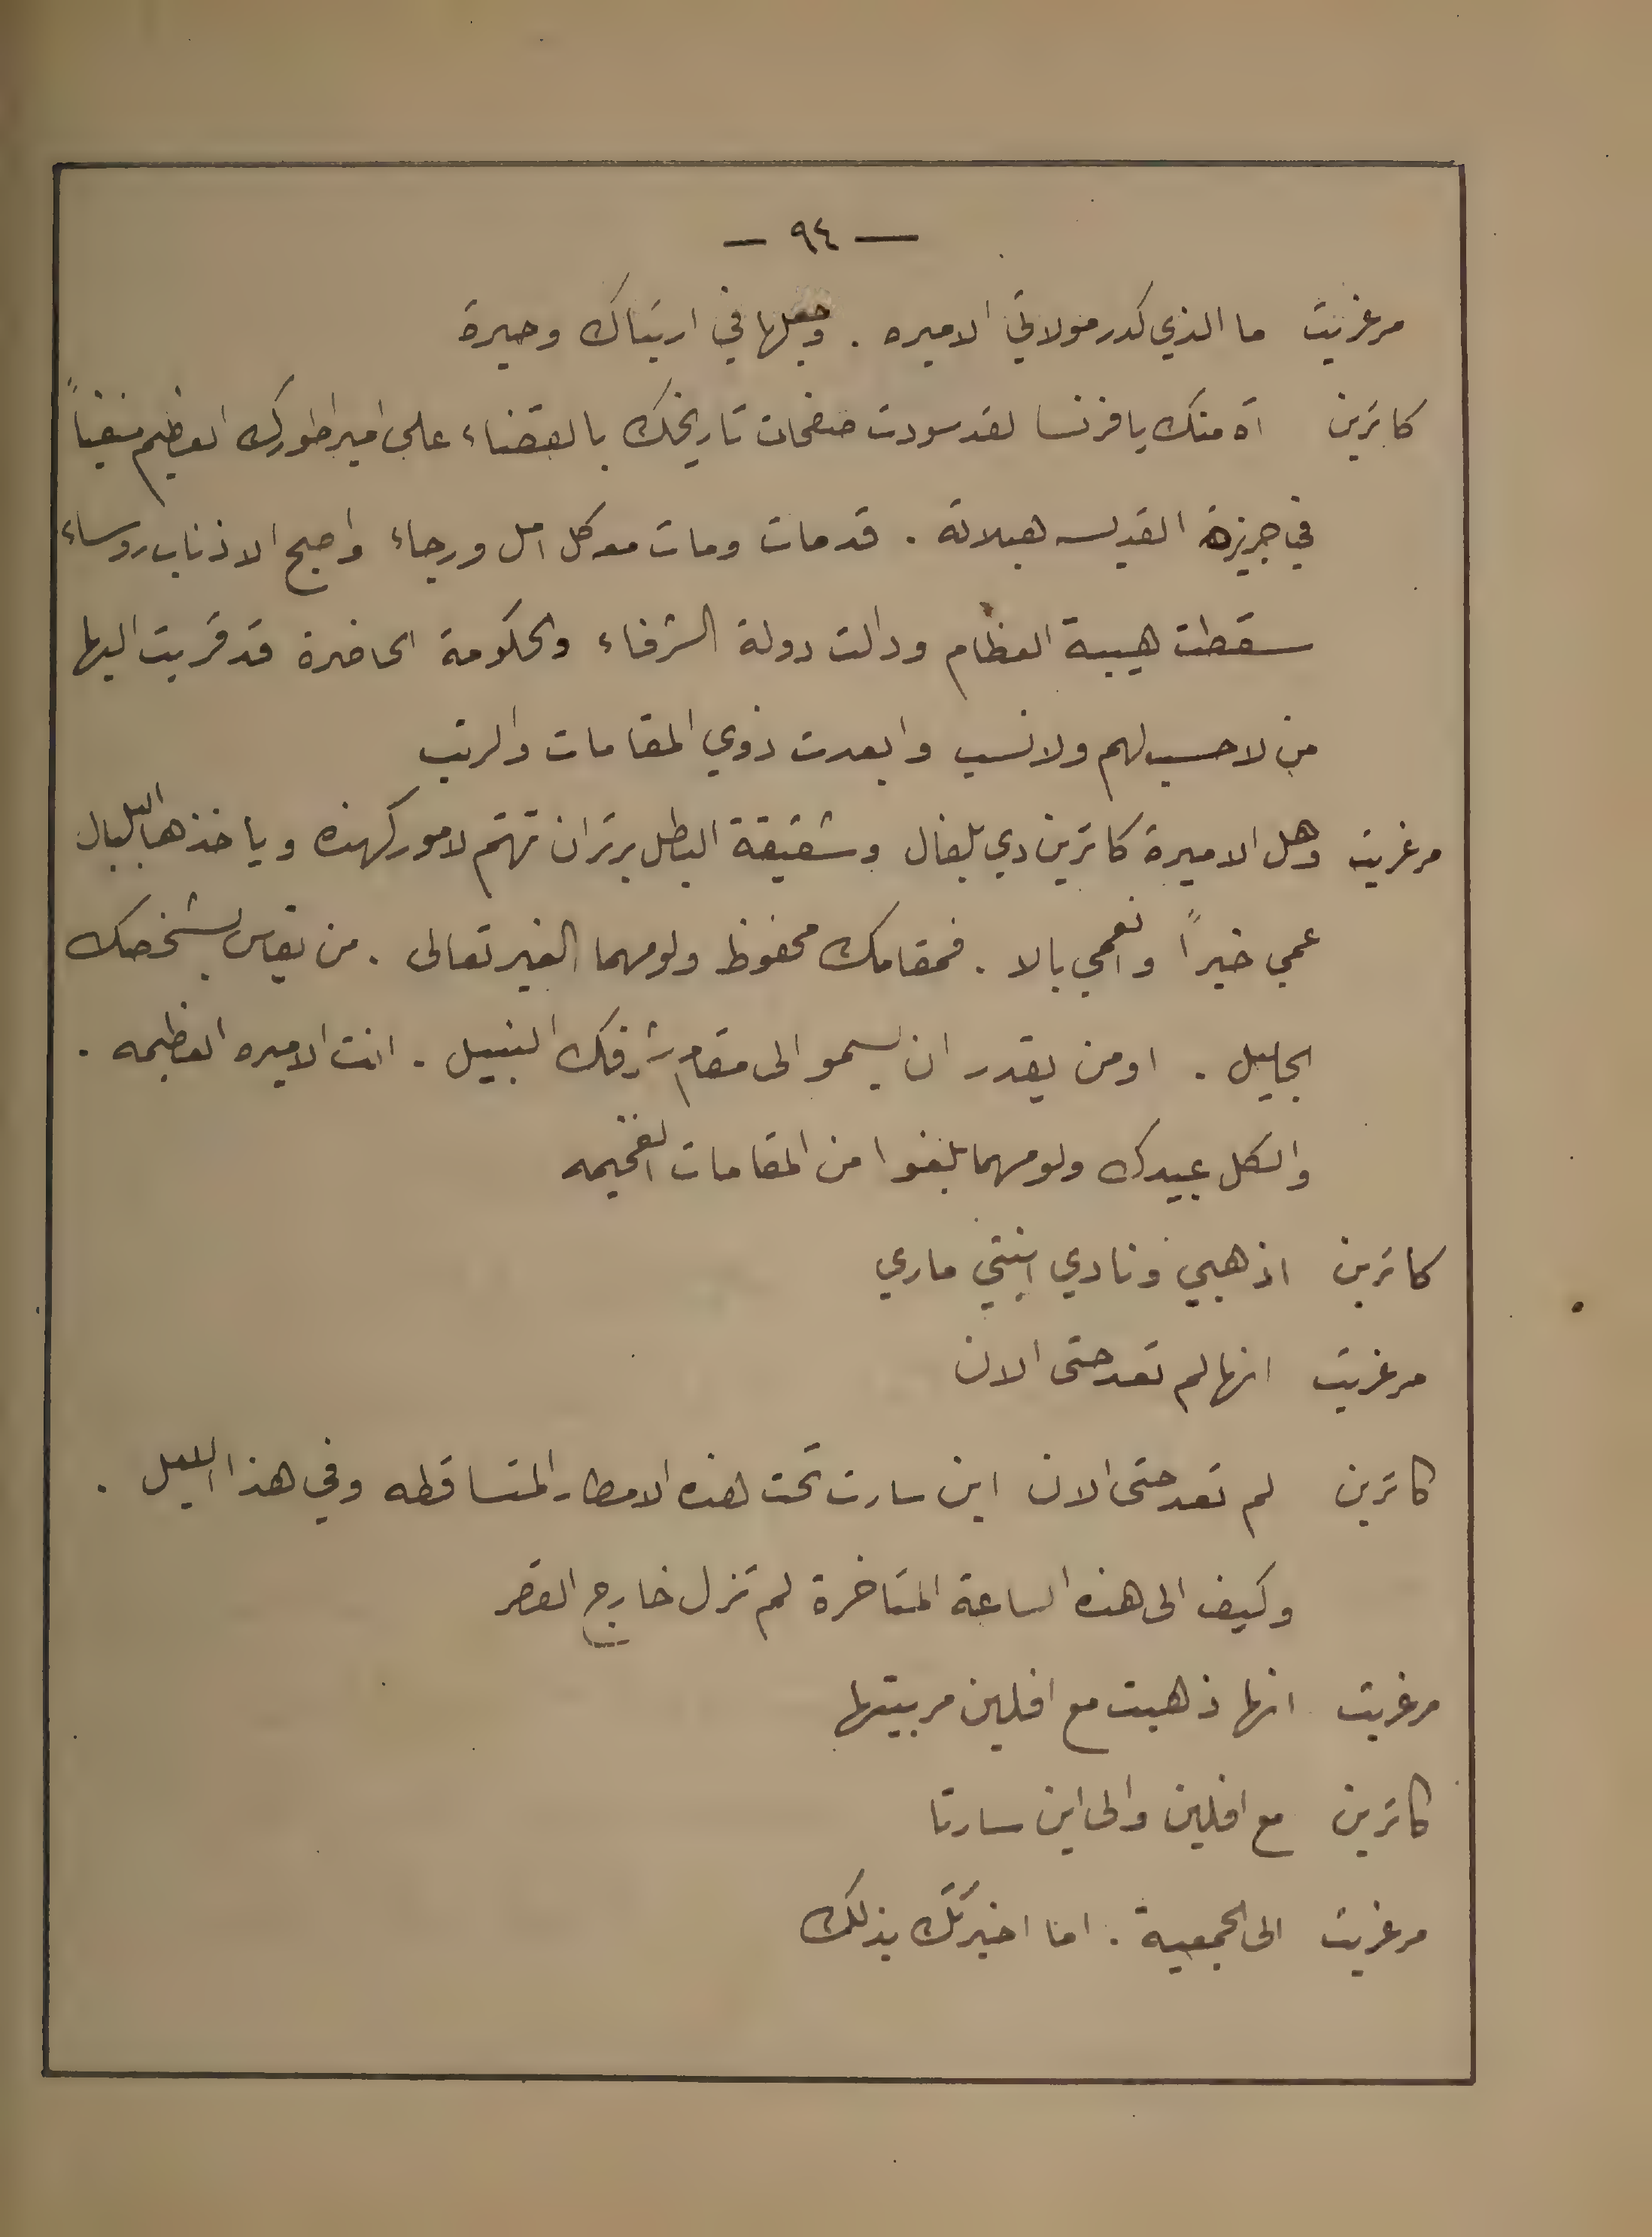 — ٩٤ —
مرغريت ما الذي كدر مولاتي الاميره . وجعلها في ارتباك وحيرة
كاترين آه منك يا فرنسا لقد سودت صفحات تاريخك بالقضاء على امبراطورك العظيم منفياً
في جزيرة القديسه هيلانه . قد مات ومات معه كل امل ورجاء واصبح الاذناب روساء
سقطت هيبة العظام ودالت دولة الشرفاء والحكومة الحاضرة قد قربت اليها
من لا حسب لهم ولا نسب وابعدت ذوي المقامات والرتب
مرغريت وهل الاميرة كاترين دي بلفال وشقيقة البطل برتران تهتم لامور كهذه وياخذها البلبال
عمي خيراً وانعمي بالا . فمقامك محفوظ ولو مهما الغير تعالى . من يقاس بشخصك
الجليل . او من يقدر ان يسمو الى مقام شرفك النبيل . انت الاميره العظيمه .
والكل عبيدك ولو مهما بلغوا من المقامات الفخيمه
كاترين اذهبي ونادي ابنتي ماري
مرغريت انها لم تعد حتى الان
كاترين لم تعد حتى الان اين سارت تحت هذه الامطار المتساقطه وفي هذا الليل .
وكيف الى هذه الساعة المتاخرة لم تزل خارج القصر
مرغريت انها ذهبت مع افلين مربيتها
كاترين مع افلين والى اين سارتا
مرغريت الى الجمعية . اما اخبرتك بذلك